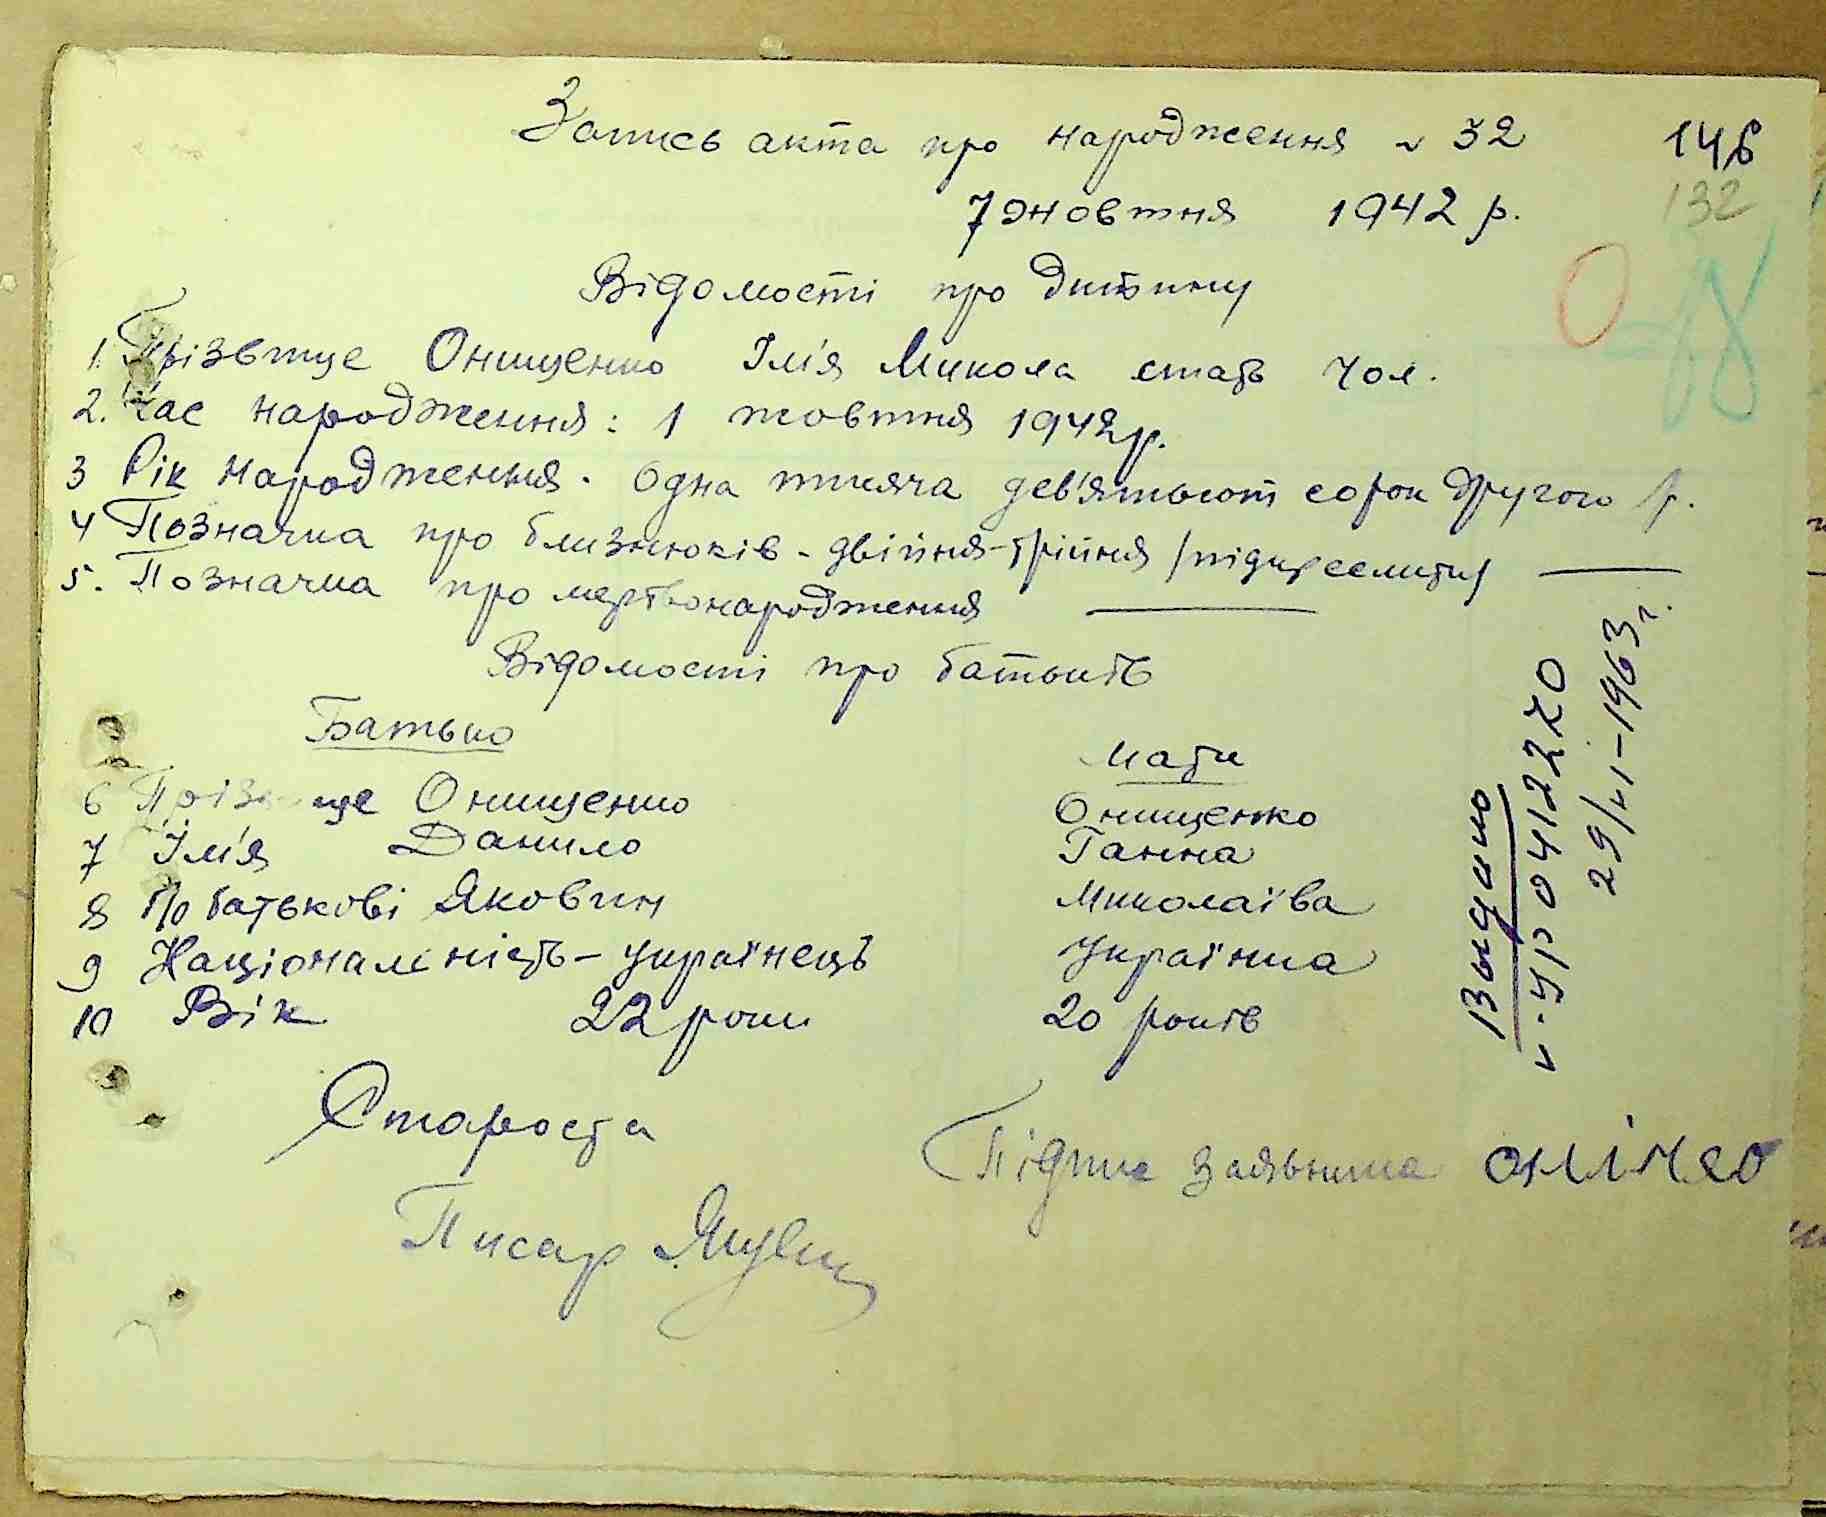 Запись акта про народження № 32
148
132
7 жовтня 1942 р.
Відомості про дитину
1. Прізвище Онищенко Ім'я Микола стать Чол.
2. Час народження: 1 жовтня 1942 р.
3 Рік народження. Одна тисяча дев'ятьсот сорок другого р.
4 Позначка про близнюків - двійня-трійня /підкреслити/ —
5. Позначка про мертвонародження —
Відомості про батьків
Батько Мати
6 Прізвище Онищенко Онищенко
7 Ім'я Данило Ганна
8 По батькові Якович Миколаївна
9 Національність - українець Українка
10 Вік 22 роки 20 років
Староста
Підпис заявника
Писар
Выдано
УР 0412270
29/VI-1963г.